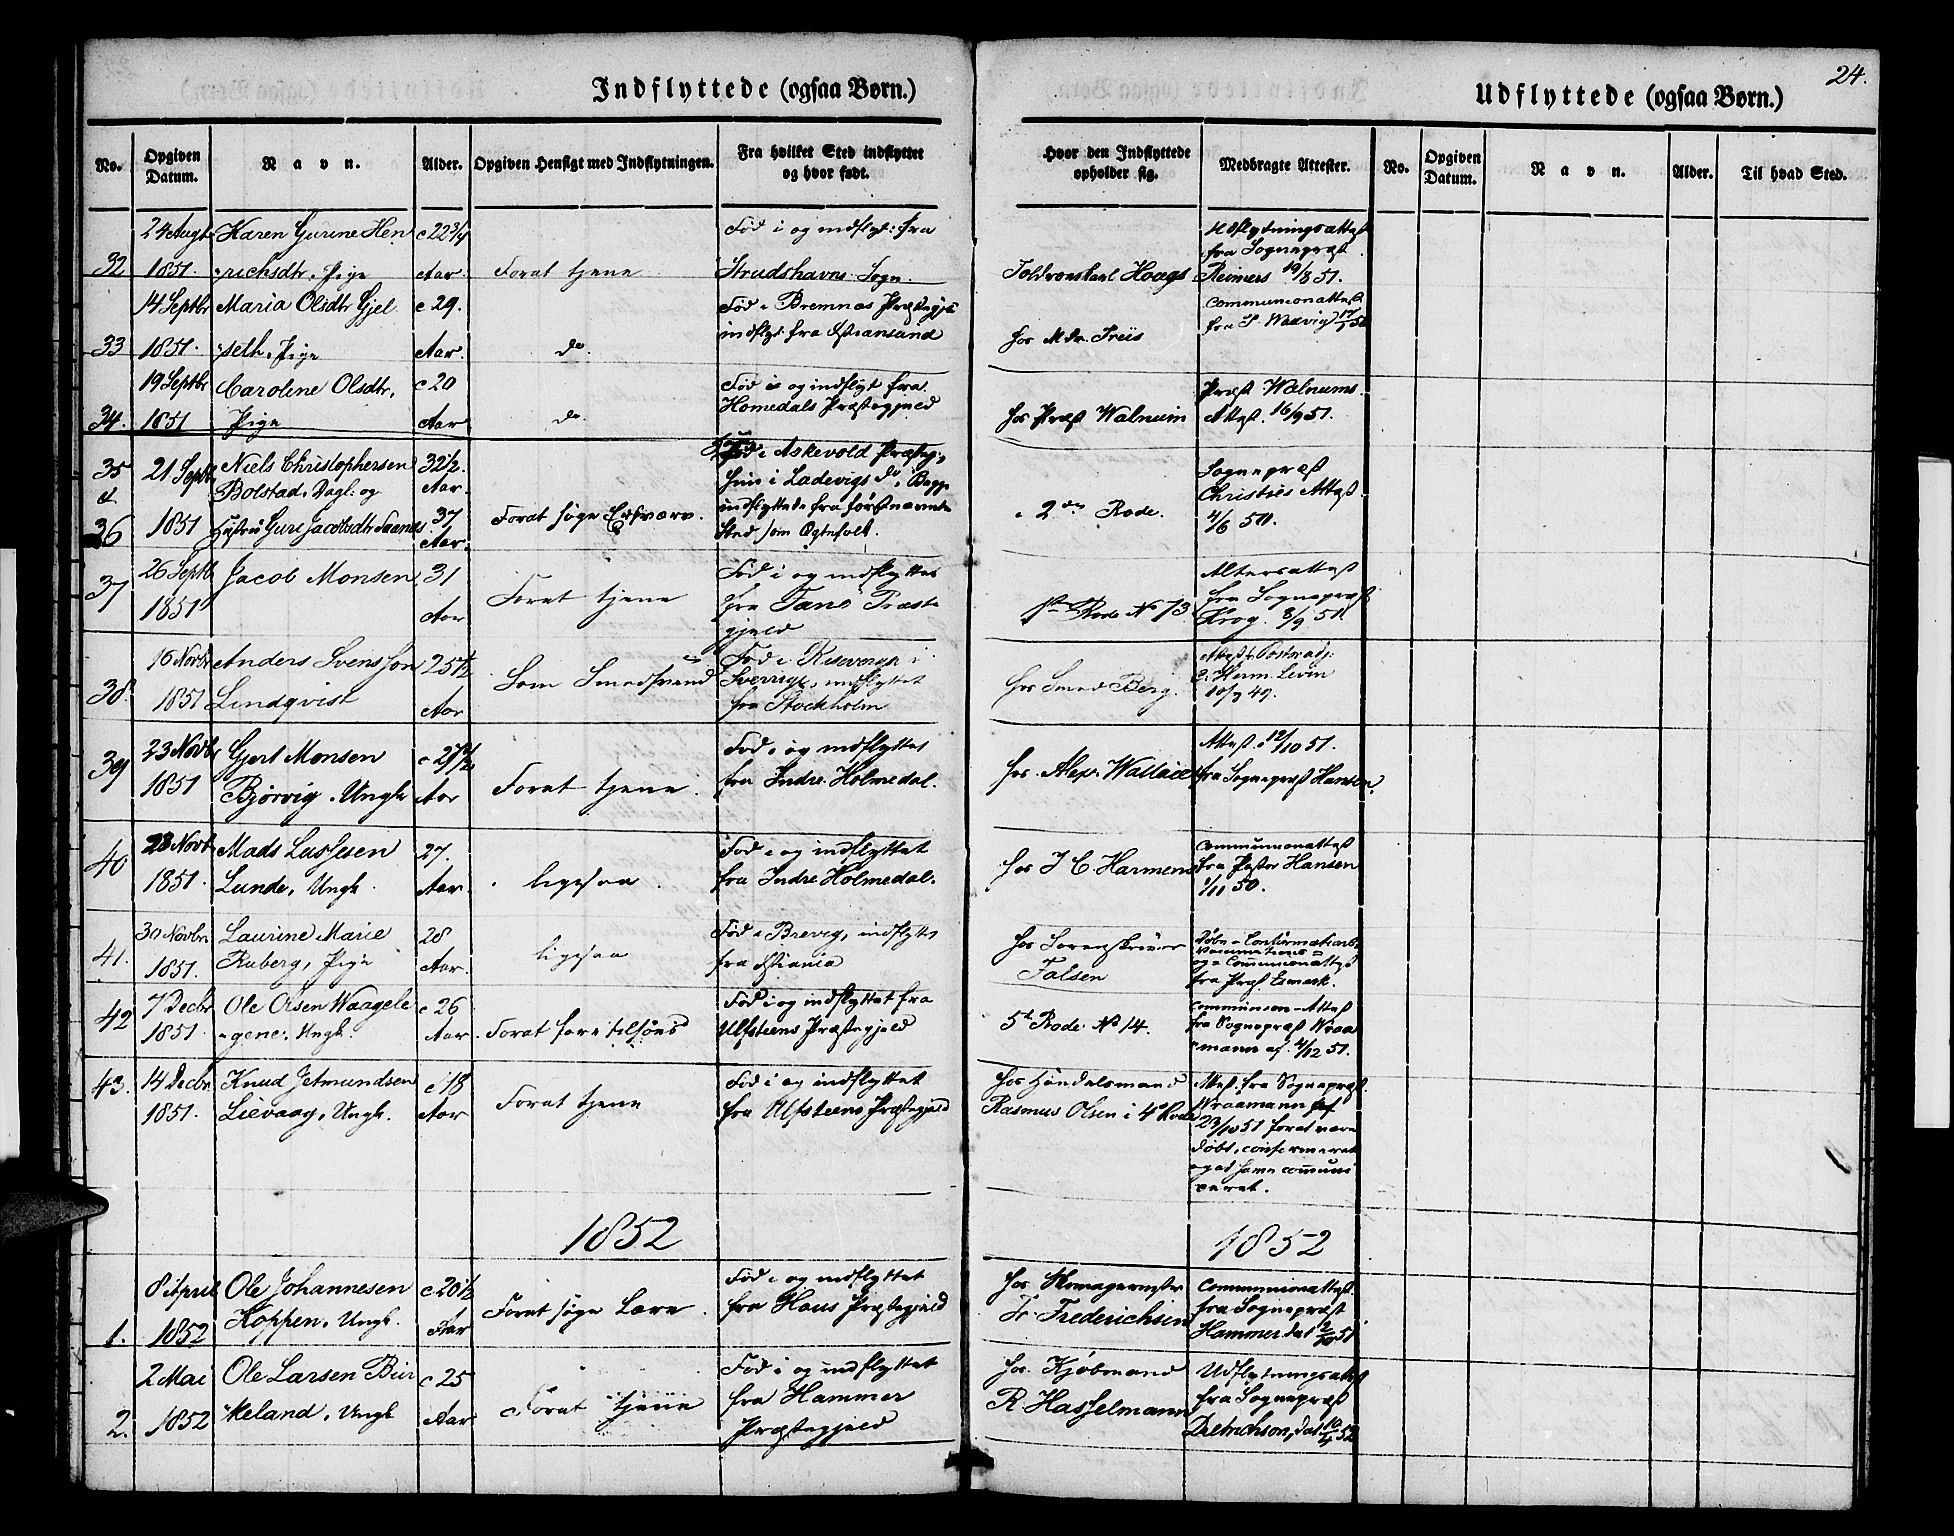 24.
Indflyttede (ogsaa Børn.)
Udflyttede (ogsaa Børn.)
No.
Opgiven Datum.
Navn.
Alder.
Opgiven Hensigt med Indflytningen.
Fra hvilket Sted indflyttet og hvor født.
Hvor den Indflyttede opholder sig.
Medbragte Attester.
No.
Opgiven Datum.
Navn.
Alder.
Til hvad Sted.
32
24 Augt 1851.
Karen Gurine Hen
richsdtr. Pige
c 22 3/4 Aar
Forat tjene
Fød i og indflyt: fra
Strudshavns Sogn.
Hoags
Udflytningsattest
fra Sognepræst
Reimers 19/8 51.
33
14 Septbr 1851.
Maria Olsdtr Gjel
seth, Pige
c 29. Aar.
do.
Fød i Bremnæs Præstegjæ
indflyt fra Christiansund
hos Mdr. Friis
Communionattest
34.
19 Septbr 1851
Caroline Olsdtr,
Pige
c 20 Aar
do.
Fød i og indflyt fra
Homedals Præstegjeld
hos Præst Walnum
Præst Walnums
Attest. 16/9 51.
35
&
36
21 Septbr 1851
Niels Christophersen
Bolstad, Dagl: og
Hustru Guri Jacobsdtr
32 1/2. Aar.
37 Aar.
Forat søge Erhverv.
Fød i Askevold Præsteg:,
hun i Ladevigs do, Begge
indflyttede fra førstnævnte
Sted som Egtefolk.
2den Rode.
Sognepræst
Christies Attest
4/6 51.
37
26 Septb 1851
Jacob Monsen
31 Aar
Forat tjene
Fød i og indflyttet
fra Præste
gjeld
1ste Rode No 73.
Altersattest
fra Sognepræst
Krog. 8/9 51.
38.
16 Novbr 1851
Anders Svensson
Lindqvist
25 1/2 Aar
Som Smedsvend
Fød i i
Sverrige, indflyttet
fra Stockholm
hos Smed Berg.
Herm. Levin
39
23 Novbr 1851
Gjert Monsen
Bjørvig, Ungk
Aar
Forat tjene.
Fød i og indflyttet
fra Indre Holmedal.
hos Alex. Wallace
Attest 12/10 51.
fra Sognepræst Hansen.
40
23 Novb 1851.
Mads Lassesen
Lunde, Ungk.
27. Aar
ligesaa
Fød i og indflyttet
fra Indre Holmedal.
hos J C. Harmens
Communionattest
fra Pastor Hansen
1/11 50.
41.
30 Novbr 1851.
Laurine Marie
Ruberg, Pige
28 Aar.
ligesaa
Fød i Brevig, indflyttet
fra Christiania
hos Sorenskriver
Falsen
Døbe- Confirmations
Vaccinations-
og Communionattest
fra Præst Esmark.
42
7 Decbr 1851.
Ole Olsen Waagele
gene, Ungk.
c 26 Aar
Forat fare tilsøes
Fød i og indflyttet fra
Ulfsteens Præstegjeld
5te Rode No 14.
Communion-Attest
fra Sognepræst Wraa
mann af 4/12 51.
43.
14 Decbr 1851.
Knud Jetmundsen
Lievaag, Ungk.
c 18 Aar
Forat tjene
Fød i og indflyttet
fra Ulfsteens Præstegjeld
hos Handelsmand
Rasmus Olsen i 4de Rode
Attest fra Sognepræst
Wraamann af
23/10 51 forat være
døbt, confirmeret
ceret.
1852
1852
1.
8 April 1852
Ole Johannesen
Koppen, Ungk.
c 20 1/2 Aar
Forat søge Lære.
Fød i og indflyttet
fra Haus Præstegjeld
hos Skomagermester
Fr Frederichsen
Communionattest
fra Sognepræst
Hammer, dat
2.
2 Mai 1852
Ole Larsen Bir
keland, Ungk
c 25 Aar
Forat tjene
Fød i og indflyttet
fra Hammer
Præstegjeld
hos Kjøbmand
R Hasselmann
Udflytningsattest
fra Sognepræst
Dietrichson, dat 10/4 52